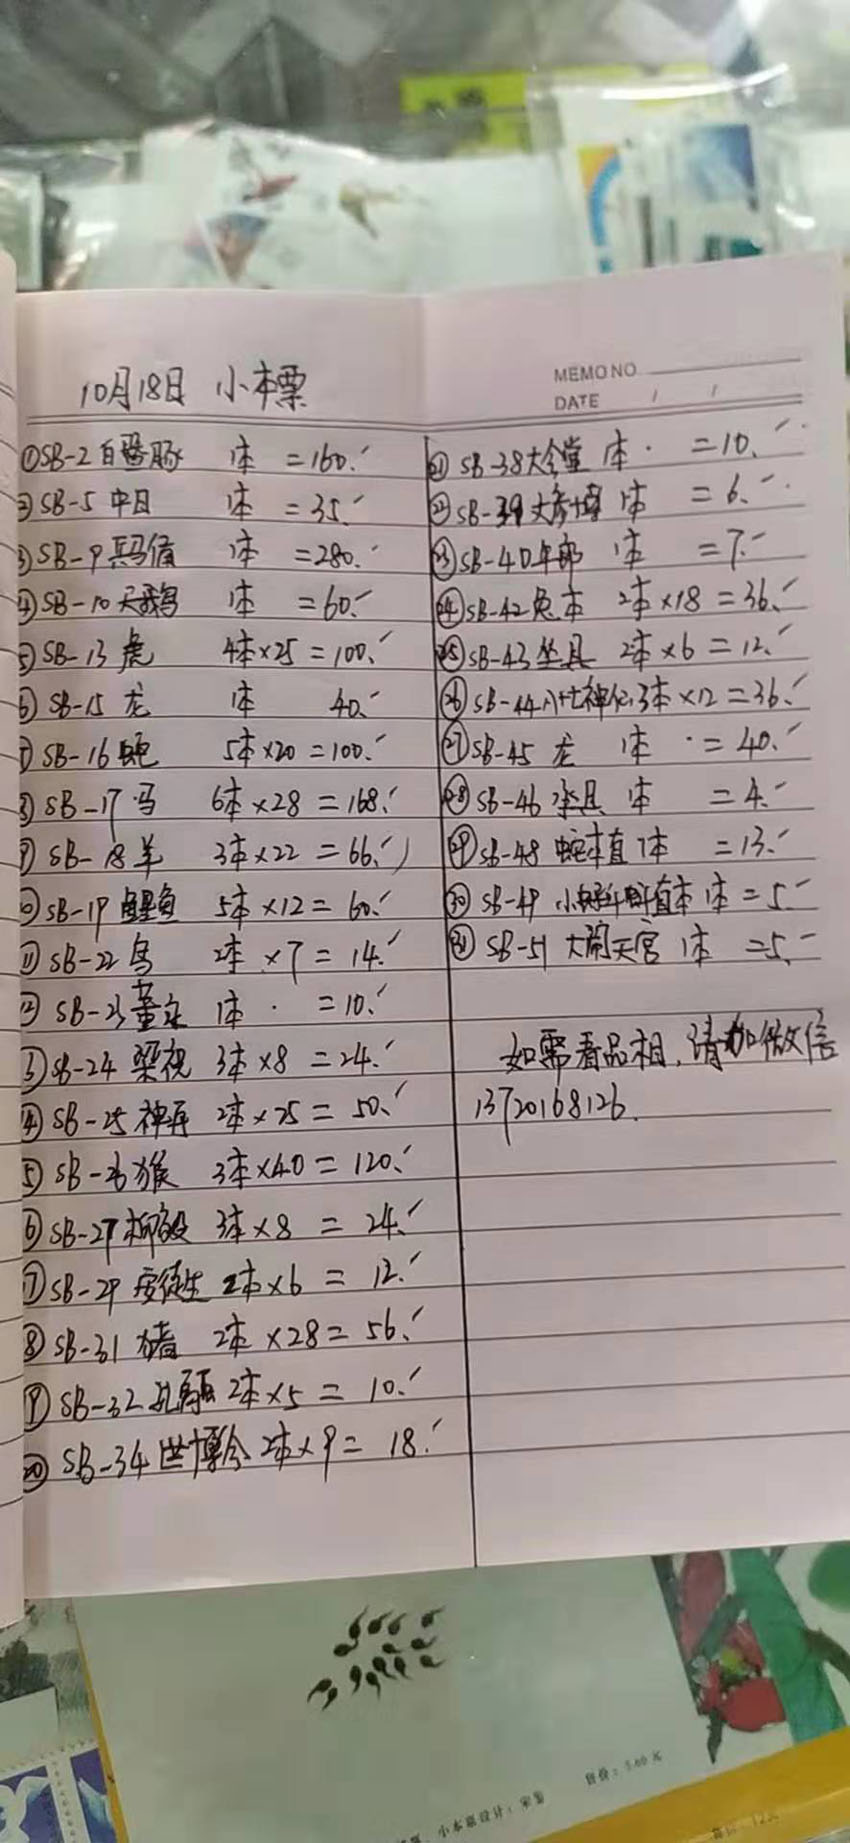 10月18日 小本票
MEMO NO.
DATE / /
①SB-2 白鳘豚 1本 =160.
②SB-5 中日 1本 =35.
③SB-9 兵马俑 1本 =280.
④SB-10 天鹅 1本 =60.
⑤SB-13 虎 4本×25=100.
⑥SB-15 龙 1本 40.
⑦SB-16 蛇 5本×20=100.
⑧SB-17 马 6本×28=168.
⑨SB-18 羊 3本×22=66.
⑩SB-19 鲤鱼 5本×12=60.
⑪SB-22 鸟 2本×7=14.
⑫SB-23 董永 1本 =10.
⑬SB-24 梁祝 3本×8=24.
⑭SB-25 神舟 2本×25=50.
⑮SB-26 猴 3本×40=120.
⑯SB-27 柳毅 3本×8=24.
⑰SB-29 安徒生 2本×6=12.
⑱SB-31 猪 2本×28=56.
⑲SB-32 孔融 2本×5=10.
⑳SB-34 世博会 2本×9=18.
㉑SB-38 大会堂 1本 =10.
㉒SB-39 1本 =6.
㉓SB-40 1本 =7.
㉔SB-42 兔本 2本×18=36.
㉕SB-43 坐具 2本×6=12.
㉖SB-44 八仙神仙 3本×12=36.
㉗SB-45 龙 1本 =40.
㉘SB-46 承具 1本 =4.
㉙SB-48 蛇本直 1本 =13.
㉚SB-49 1本=5.
㉛SB-51 大闹天宫 1本 =5.
如需看品相,请加微信
13720168126.
小本票设计:宋鉴
售价:5.60元